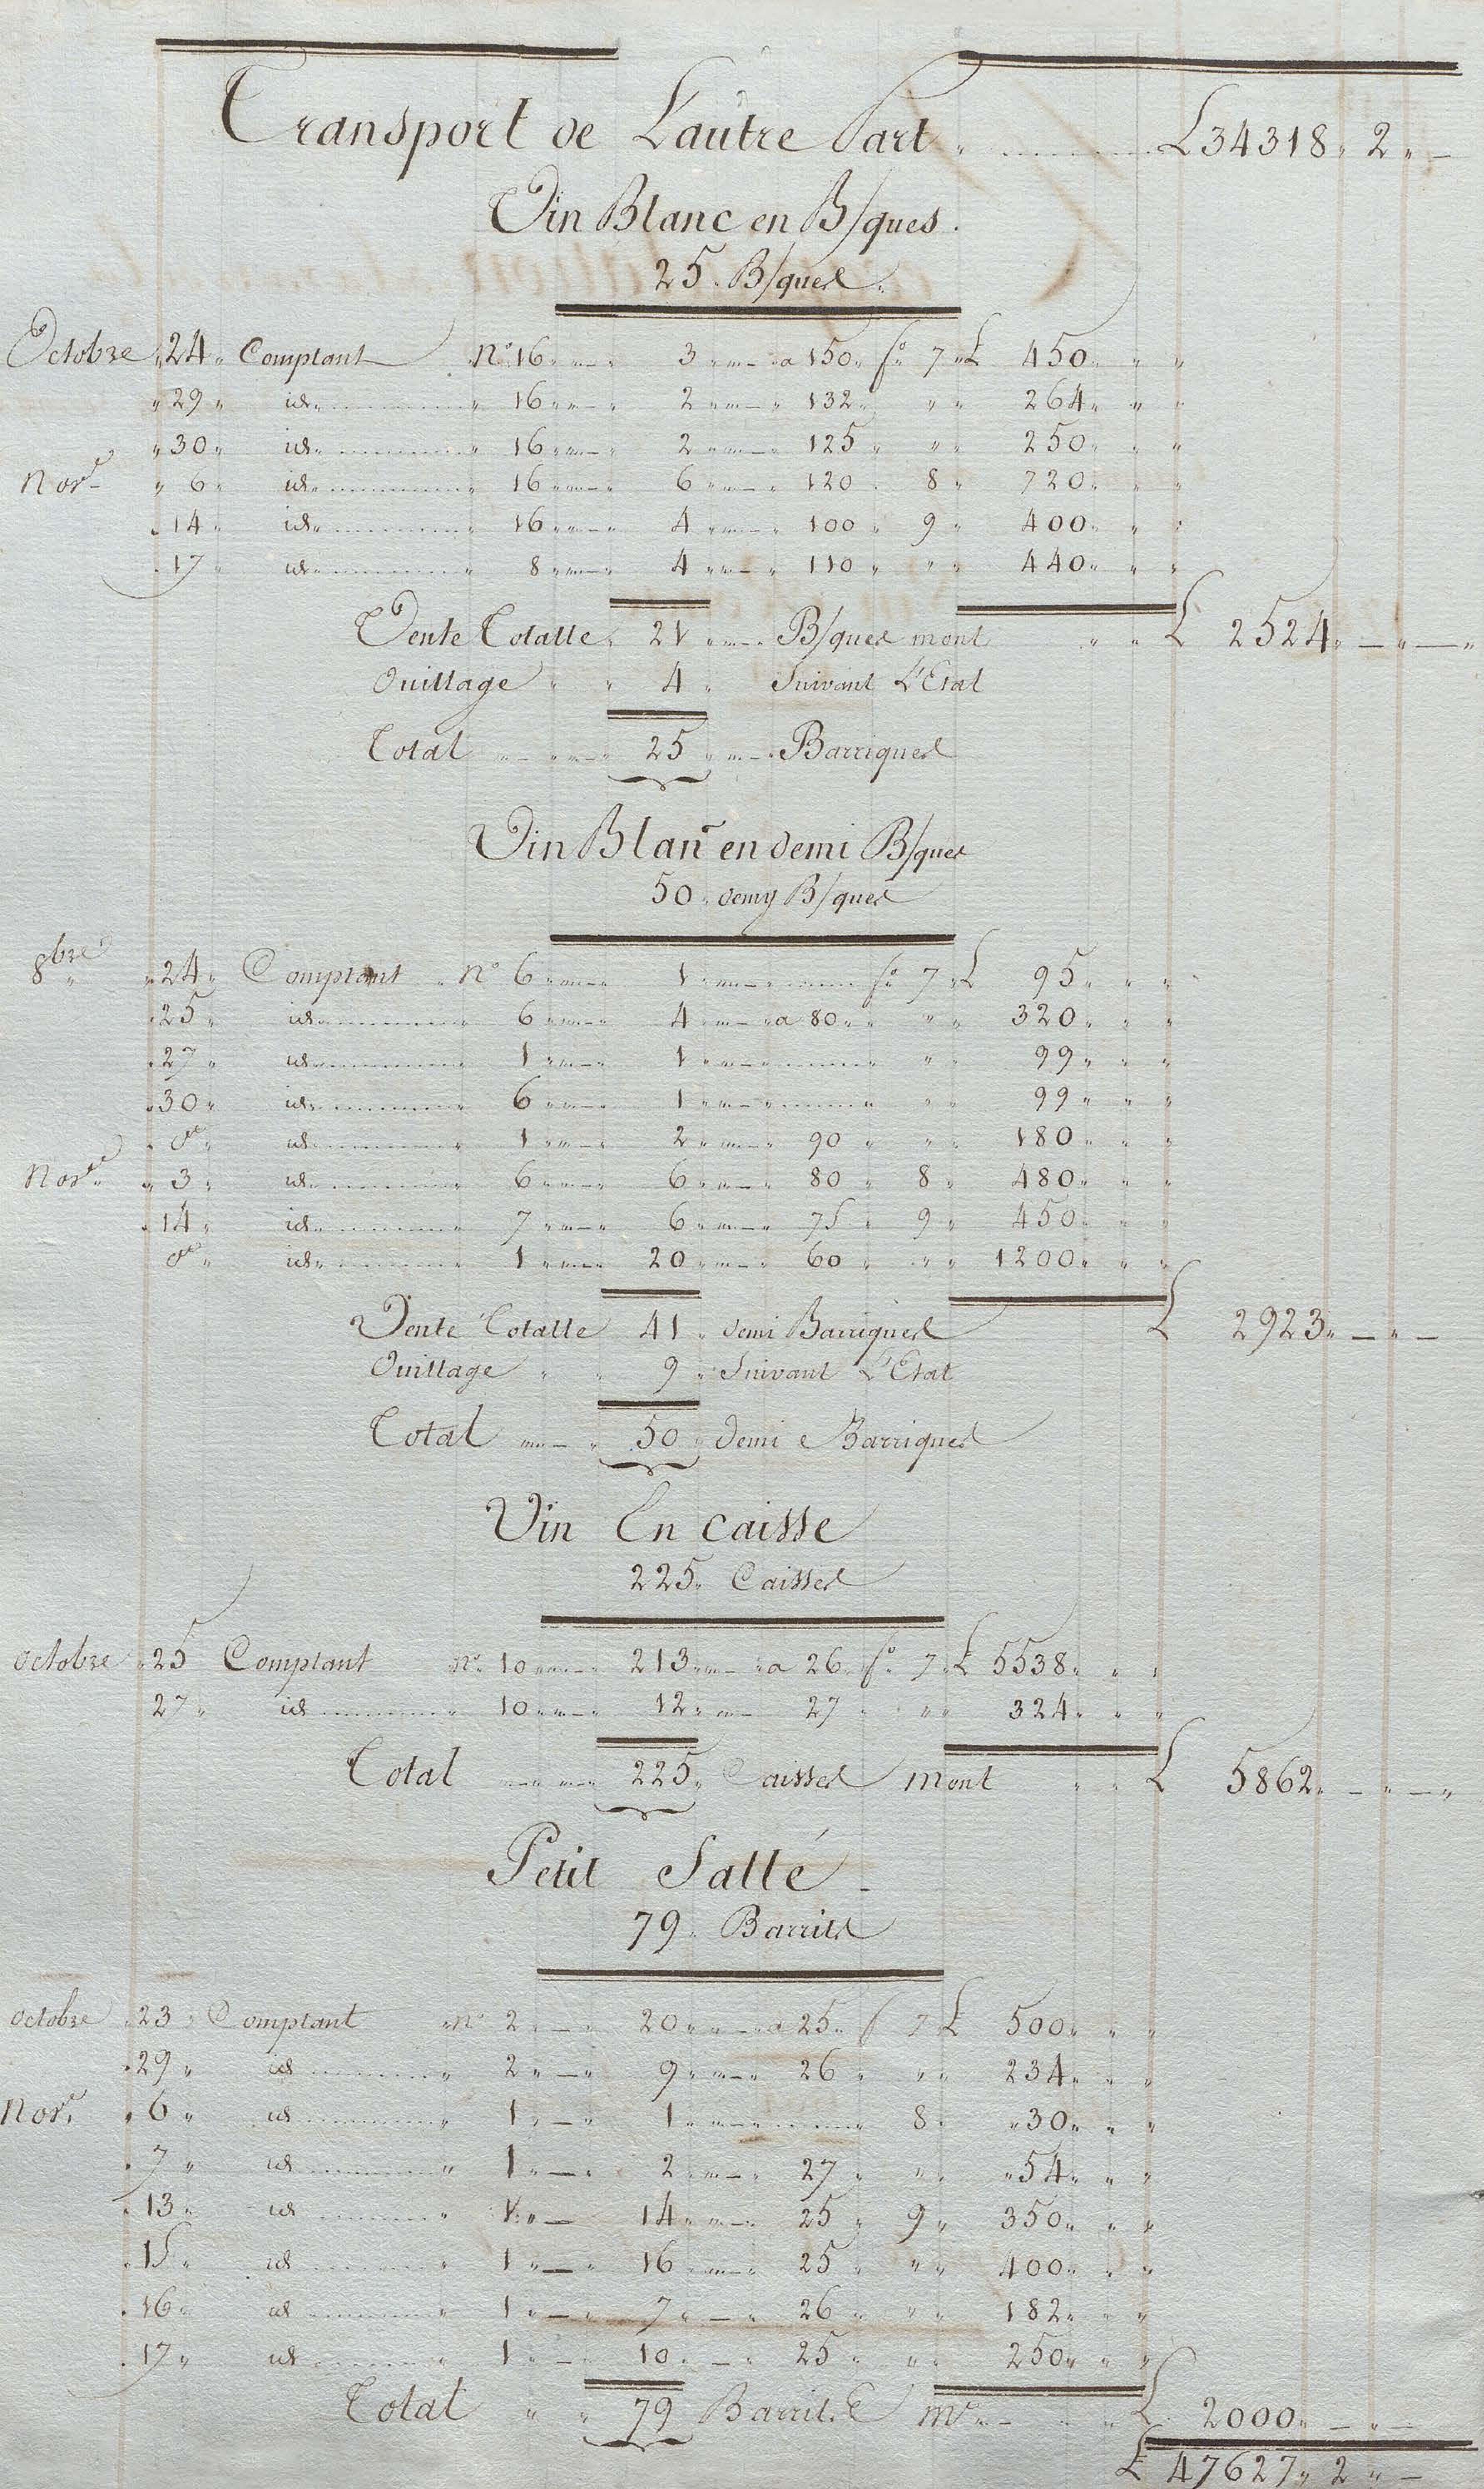 Transport de L'autre Part £ 34318 " 2 " —
Vin Blanc en B/ques.
25 . B/ques .
Octobre " 24 " Comptant N° 16 3 a 150 " f° 7 " £ 450 " " "
" 29 " id. " 16 2 " 132 " " " 264 " " "
" 30 " id. " 16 2 " 125 " " " 250 " " "
Nov.e " 6 " id. " 16 6 " 120 " 8 " 720 " " "
" 14 " id. " 16 4 " 100 " 9 " 400 " " "
" 17 " id. " 8 4 " 110 " " " 440 " " "
Vente Totalle 21 B/ques mont " " £ 2524 " — " — "
Ouillage " " 4 " Suivant L'Etat
Total 25 Barriques
Vin Blanc en demi B/ques
50 . demy B/ques
8bre " 24 " Comptant n° 6 1 f° 7 " £ 95 " " "
" 25 " id. " 6 4 a 80 " " " 320 " " "
" 27 " id. " 1 1 " " 99 " " "
" 30 " id. " 6 1 " " 99 " " "
" d.o " id. " 1 2 " 90 " " " 180 " " "
Nov.re " 3 " id. " 6 6 " 80 " 8 " 480 " " "
" 14 " id. " 7 6 " 75 " 9 " 450 " " "
d.o " id. " 1 20 " 60 " " " 1200 " " "
Vente Totalle 41 " demi Barriques £ 2923 " — " —
Ouillage " " 9 " Suivant L'Etat
Total 50 " demie Barriques
Vin En caisse
225 . Caisses
Octobre " 25 Comptant N° 10 213 a 26 " f° 7 " £ 5538 " " "
27 " id. " 10 12 " 27 " " " 324 " " "
Total 225 " Caisses mont " " £ 5862 " — " — "
Petit Sallé
79 . Barrils
octobre " 23 " Comptant n° 2 20 a 25 " f 7 " £ 500 " " "
" 29 " id " 2 9 " 26 " " " 234 " " "
Nov.e " 6 " id " 1 1 " 8 " " 30 " " "
" 7 " id " 1 2 " 27 " " " " 54 " " "
" 13 " id " 1 14 " 25 " 9 " 350 " " "
" 15 " id " 1 16 " 25 " " " 400 " " "
" 16 " id " 1 7 " 26 " " " 182 " " "
" 17 " id " 1 10 " 25 " " " 250 " " "
Total " " 79 Barrils £ 2000 " — " —
£ 47627 " 2 " —